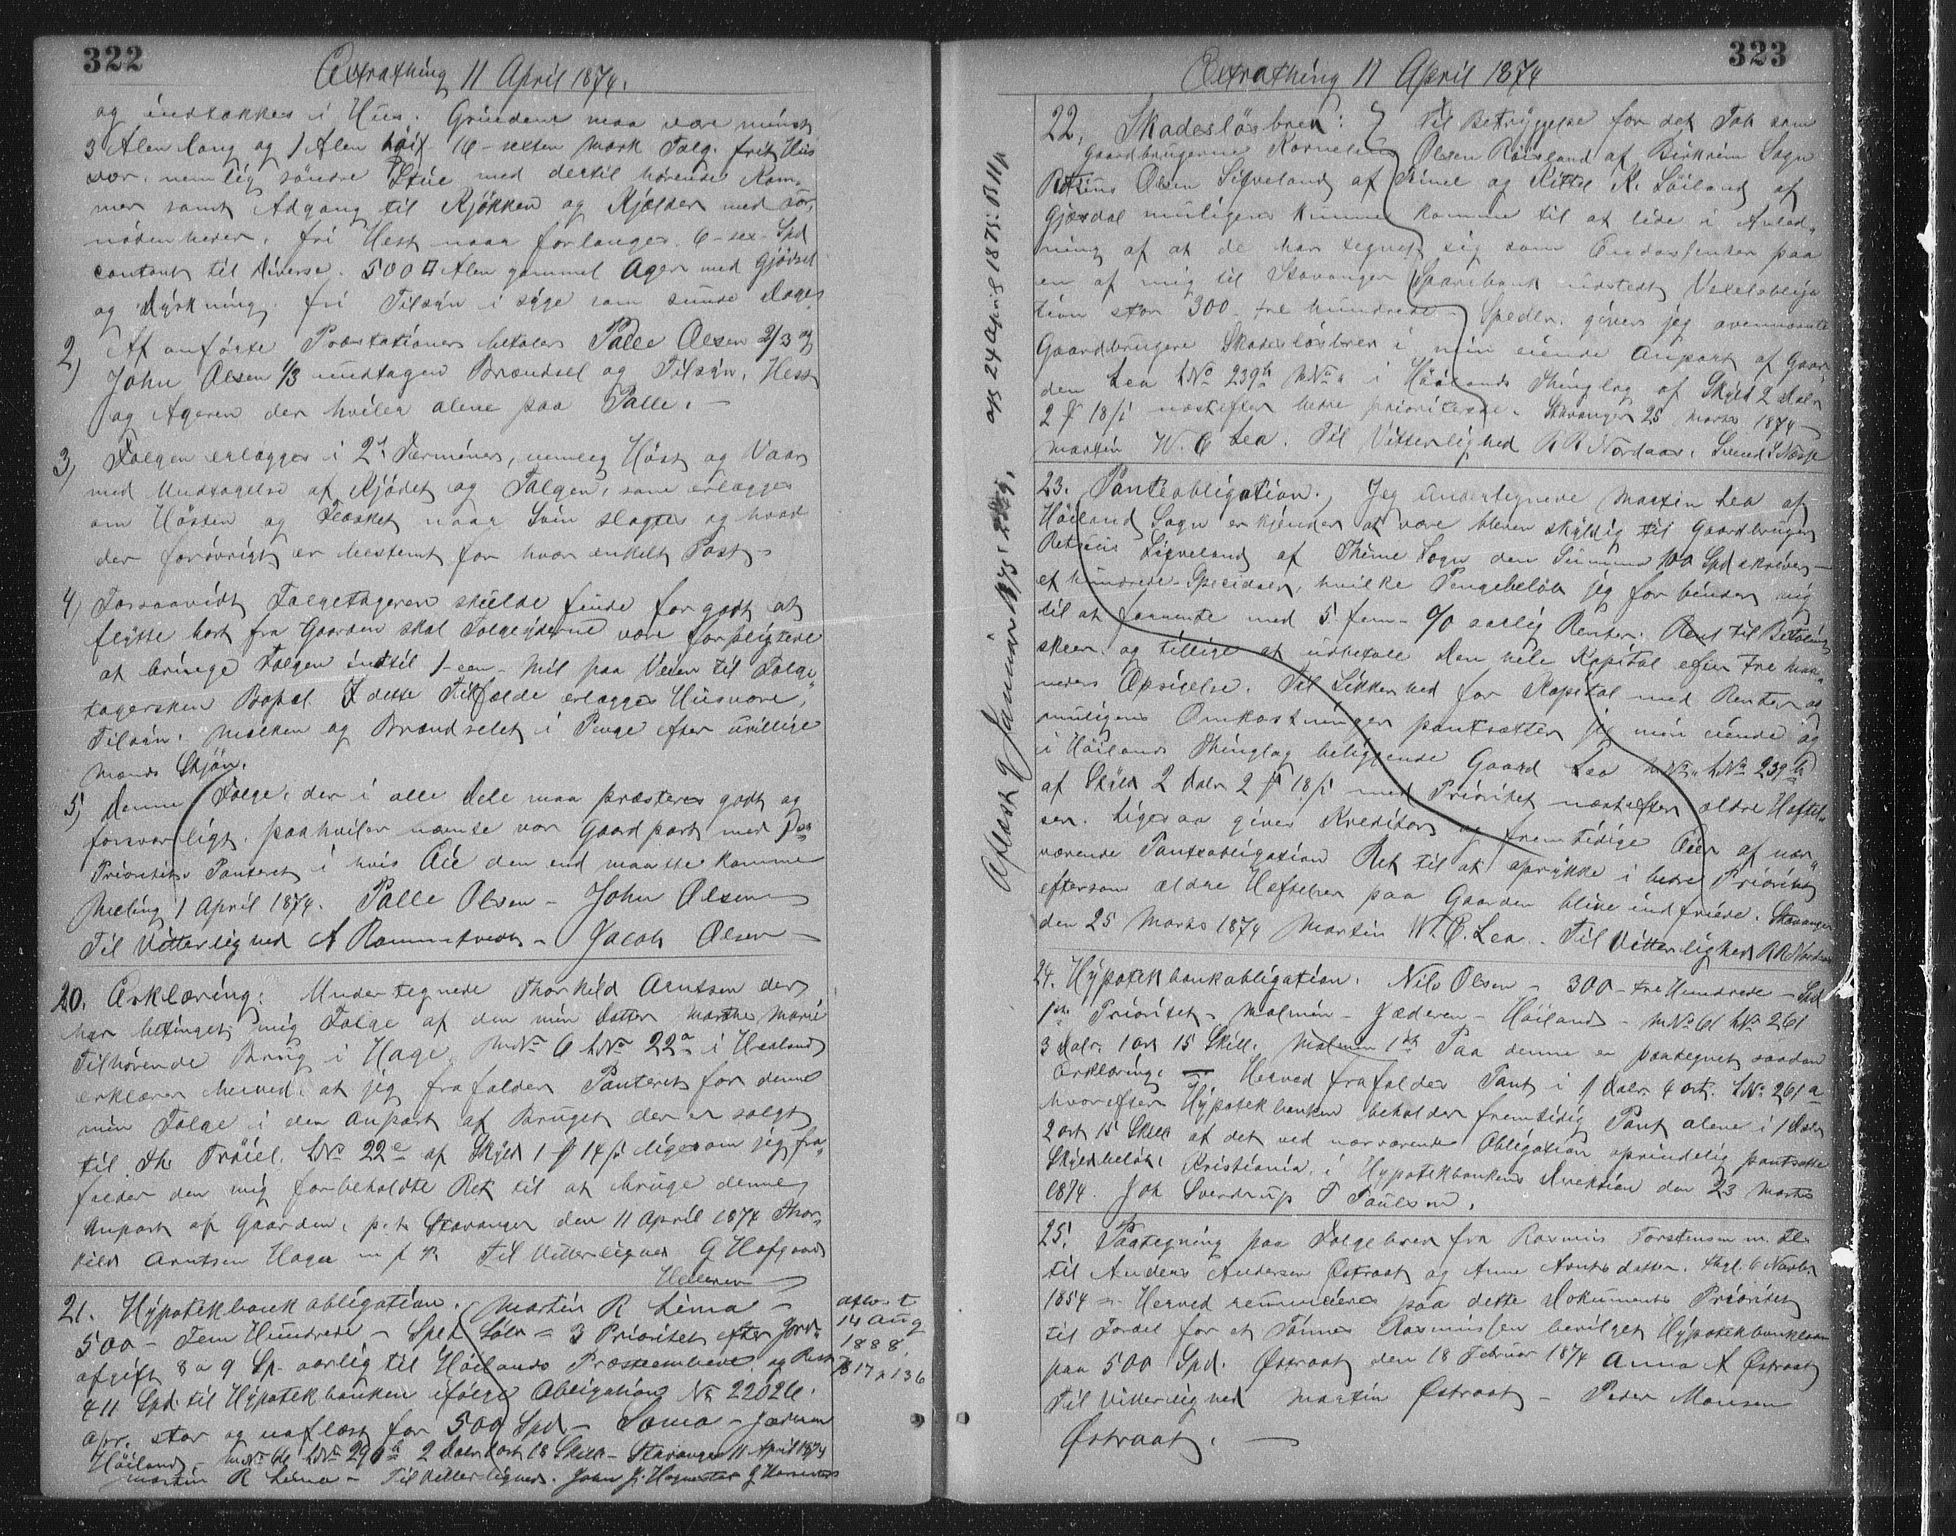 322
Extrathing 11 April 1874.
og indtækkes i Huus. Grinderne maa være mindst
3 Alen lang og 1 Alen høi 16 - sexten Mark Talg. frit Huus
vær. nemlig söndre Stue med dertil hørende Kam-
mer samt Adgang til Kjøkken og Kjælder med For-
nødenheder. fri Hest naar forlanges. 6 - sex - Spd
contant til diverse. 500 □ Alen gammel Ager med Gjødsel
og Dyrkning. fri Tilsyn i syge som sunde Dage
2) Af anførte Præstationer betaler Palle Olsen 2/3 og
John Olsen 1/3 undtagen Brændsel og Tilsyn. Hest
og Ageren der hviler alene paa Palle. -
3) Folgen erlægges i 2de Terminer, nemlig Høst og Vaar
med Undtagelse af Kjødet og Talgen, som erlægges
om Høsten og Flæsket naar Sviin slagtes og hvad
der forøvrigt er bestemt for hver enkelt Post -
4) Forsaavidt Folgetageren skulde finde for godt at
flytte bort fra Gaarden skal Folgeyderne være forpligtede
at bringe Folgen indtil 1 - een - Mil paa Veien til Folge-
tagersken Bopæl. I dette Tilfælde erlægges Husvære,
Tilsyn. Melken og Brændselet i Penge efter uvillige
Mænds Skjøn.
5) Denne Folge, der i alle Dele maa præsteres godt og
forsvarligt, paahviler næmte vor Gaardpart med 1ste
Prioritets Panteret i hvis Eie den end maatte komme
Meling 1 April 1874. Palle Olsen - John Olsen
Til Vitterlighed A Rommetvedt - Jacob Olsen -
20. Erklæring. Undertegnede Thorkild Arntsen der
har betinget mig Folge af den min Datter Marthe Marie
Tilhørende Brug i Hage MNo 6 LNo 22a i Haaland
erklærer herved, at jeg frafalder Panteret for denne
min Folge i den Anpart af Bruget der er solgt
til Th Trøiel. LNo 22c af Skyld 1 ort 14 s ligesom jeg fra-
falder den mig forbeholdte Ret til at bruge denne
Anpart af Gaarden, p.t. Stavanger den 11 April 1874 Thor-
kild Arntsen Hage m f P. Til Vitterlighed G Hofgaard
21. Hypotekbankobligation. Martin R Lima -
500 - Fem Hundrede - Spd Sølv = 3 Prioritet efter Jord-
afgift 8 a 9 Sp. aarlig til Høilands Præsteembede og Rest
411 Spd. til Hypotekbanken ifølge Obligation No 22026.
opr. stor og uaflæst for 500 Spd - Soma - Jæderen
Høiland - MNo 61 LNo 296a 2 Daler ort 18 Skill - Stavanger 11 April 1874
Martin R Lima - Til Vitterlighed. John J.
aflæst
14 Aug
1888.
B 17 p 136
323
Extrathing 11 April 1874
22. Skadesløsbrev: Til Betryggelse for det Tab som
Gaardbrugerne Kornelius Olsen Röisland af Birkrem Sogn
Retsius Olsen Sigveland af Thime og Kittel K. Löiland af
Gjæsdal muligens kunne komme til at lide i Anled-
ning af at de har tegnet sig som Endossenter paa
en af mig til Stavanger Sparebank udstedt Vexelobliga
tion stor 300 - tre hundrede - Spedlr. giver jeg ovennævnte
Gaardbrugere Skadesløsbrev i min eiende Anpart af Gaar-
den Lea LNo 239b MNo " i Høilands Thinglag af Skyld 2 Daler
2 ort 18 s næstefter bedre prioriterede. Stavanger 25 Marts 1874
Martin W. E Lea. Til Vitterlighed R R Nordaas. Svend S Næsse
afs 24 April 1875: B 11 p
23. Panteobligation. Jeg undertegnede Martin Lea af
Høiland Sogn erkjender at være bleven skyldig til Gaardbruger
Retsius Sigveland af Thime Sogn den Summa 100 Spd skriver
et hundrede Speciedaler, hvilke Pengebeløb jeg forbinder mig
til at forrente med 5 fem - % aarlig Renter. Rent til Betaling
skeer. og tillige at udbetale den hele Kapital efter tre maa-
neders Opsigelse. Til Sikkerhed for Kapital med Renter og
muligens Omkostninger pantsætter jeg min eiende og
i Høilands Thinglag beliggende Gaard Lea MNo " LNo 239b
af Skyld 2 Daler 2 ort 18 s med Prioritet næstefter ældre Heftel-
ser. Ligesaa giver Kreditor og fremtidige Eier af nær-
værende Panteobligation Ret til at oprykke i bedre Prioritet
eftersom ældre Heftelser paa Gaarden blive indfriede. Stavanger
den 25 Marts 1874 Martin W. E. Lea. Til Vitterlighed R R Nordaas
Aflæst 9 Januar 1875:
24. Hypotekbankobligation. Nils Olsen - 300 - tre Hundrede - Spd
1ste Prioritet - Malmin - Jæderen - Høiland - MNo 61 LNo 261
3 Daler. 1 ort 15 Skill. Malmin 1ste Paa denne er paategnet saadan
Erklæring. - Herved frafaldes Pant i 1 Daler 4 ort. LNo 261a
hvorefter Hypotekbanken beholder fremtidig Pant alene i 1 Daler
2 ort 15 Skill af det ved nærværende Obligation oprindelig pantsatte
Skyldbeløb. Kristiania, i Hypotekbankens Direktion den 23 Marts
1874. Joh Sverdrup T Paulsen.
25. Paategning paa Folgebrev fra Rasmus Torstensen m. fl.
til Anders Andersen Østraat og Anne Arntsdatter. thgl. 6 Novbr
1854 = Herved renuncieres paa dette Dokuments Prioritet
til Fordel for et Tönnes Rasmussen bevilget Hypotekbanklaan
paa 500 Spd. Østraat den 18 Februar 1874 Anna A Østraat
Til Vitterlighed Martin Østraat - Peder Monsen
Østraat. -